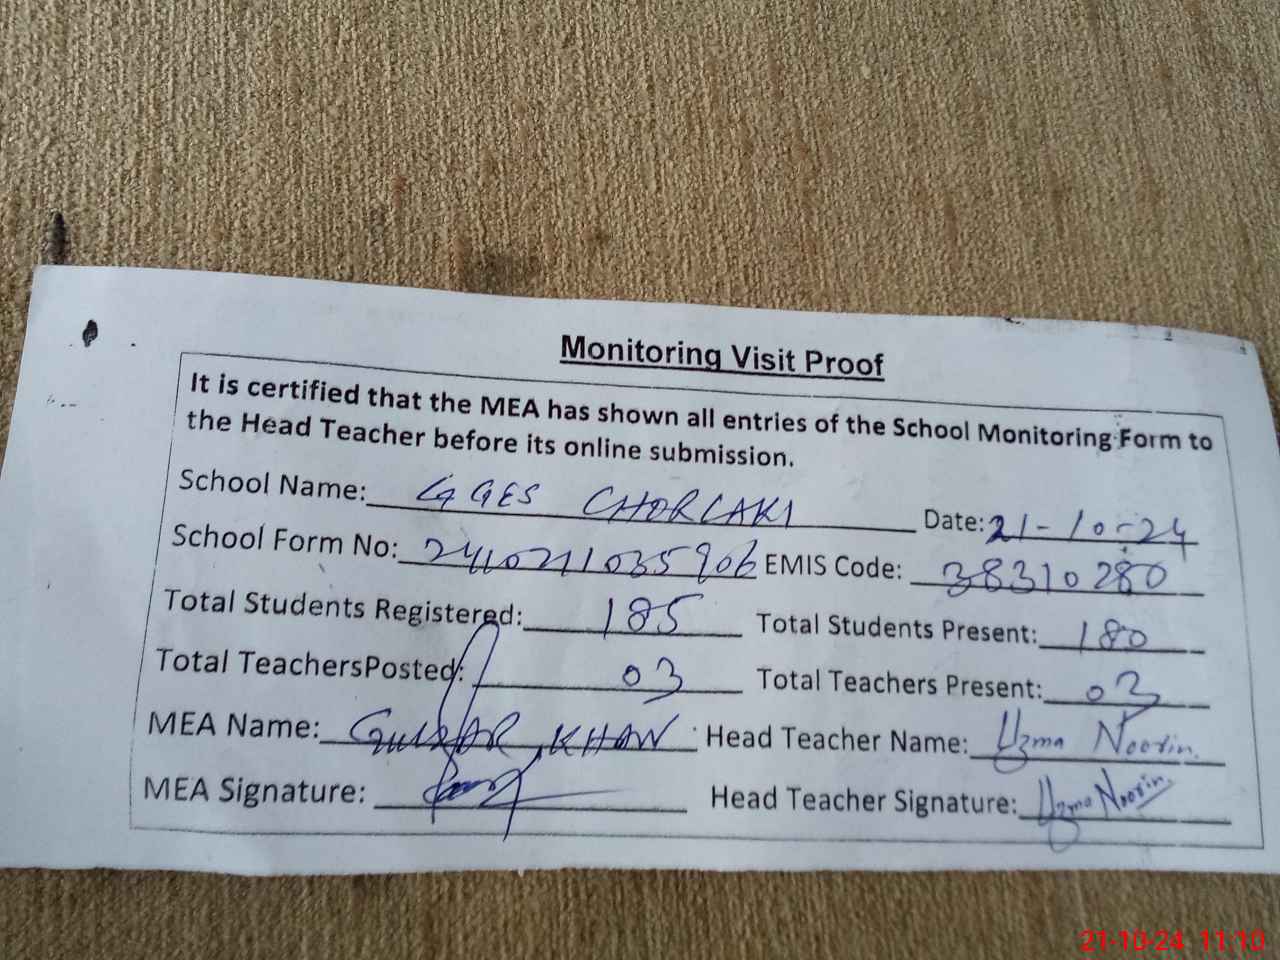 Monitoring Visit Proof
It is certified that the MEA has shown all entries of the School Monitoring Form to
the Head Teacher before its online submission.
School Name: GGES CHORLAKI Date: 21-10-24
School Form No: 2410211035906 EMIS Code: 38310280
Total Students Registered: 185 Total Students Present: 180
Total TeachersPosted: 03 Total Teachers Present: 03
MEA Name: GULZAR KHAN Head Teacher Name: Uzma Noorin.
MEA Signature: Head Teacher Signature: Uzma Noorin
21-10-24 11:10